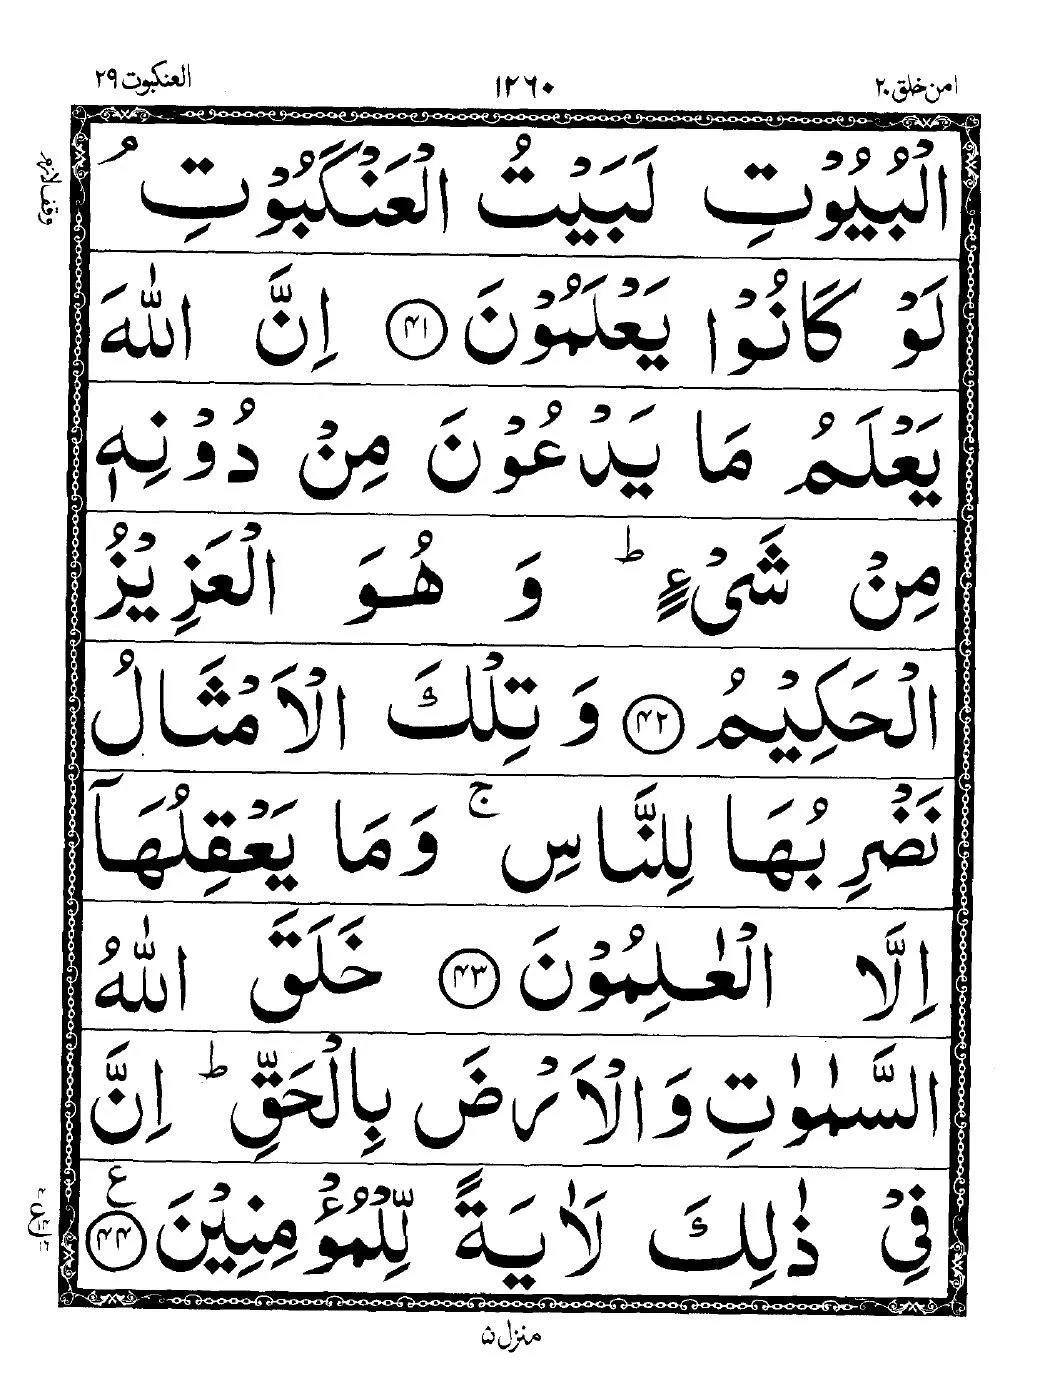 امن خلق ۲۰
۱۲۶۰
العنكبوت ۲۹
الْبُيُوْتِ لَبَيْتُ الْعَنْكَبُوْتِ ۘ
وقف لازم
لَوْ كَانُوْا يَعْلَمُوْنَ ۴۱ اِنَّ اللّٰهَ
يَعْلَمُ مَا يَدْعُوْنَ مِنْ دُوْنِهٖ
مِنْ شَیْءٍ ؕ وَ هُوَ الْعَزِيْزُ
الْحَكِيْمُ ۴۲ وَ تِلْكَ الْاَمْثَالُ
نَضْرِبُهَا لِلنَّاسِ ۚ وَ مَا يَعْقِلُهَاۤ
اِلَّا الْعٰلِمُوْنَ ۴۳ خَلَقَ اللّٰهُ
السَّمٰوٰتِ وَ الْاَرْضَ بِالْحَقِّ ؕ اِنَّ
فِیْ ذٰلِكَ لَاٰيَةً لِّلْمُؤْمِنِيْنَ ۴۴ ع
منزل ۵